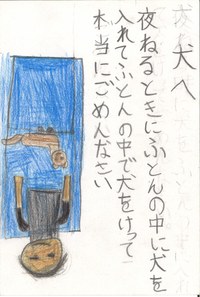 犬へ
夜ねるときにふとんの中に犬を
入れてふとんの中で犬をけって
本当にごめんなさい